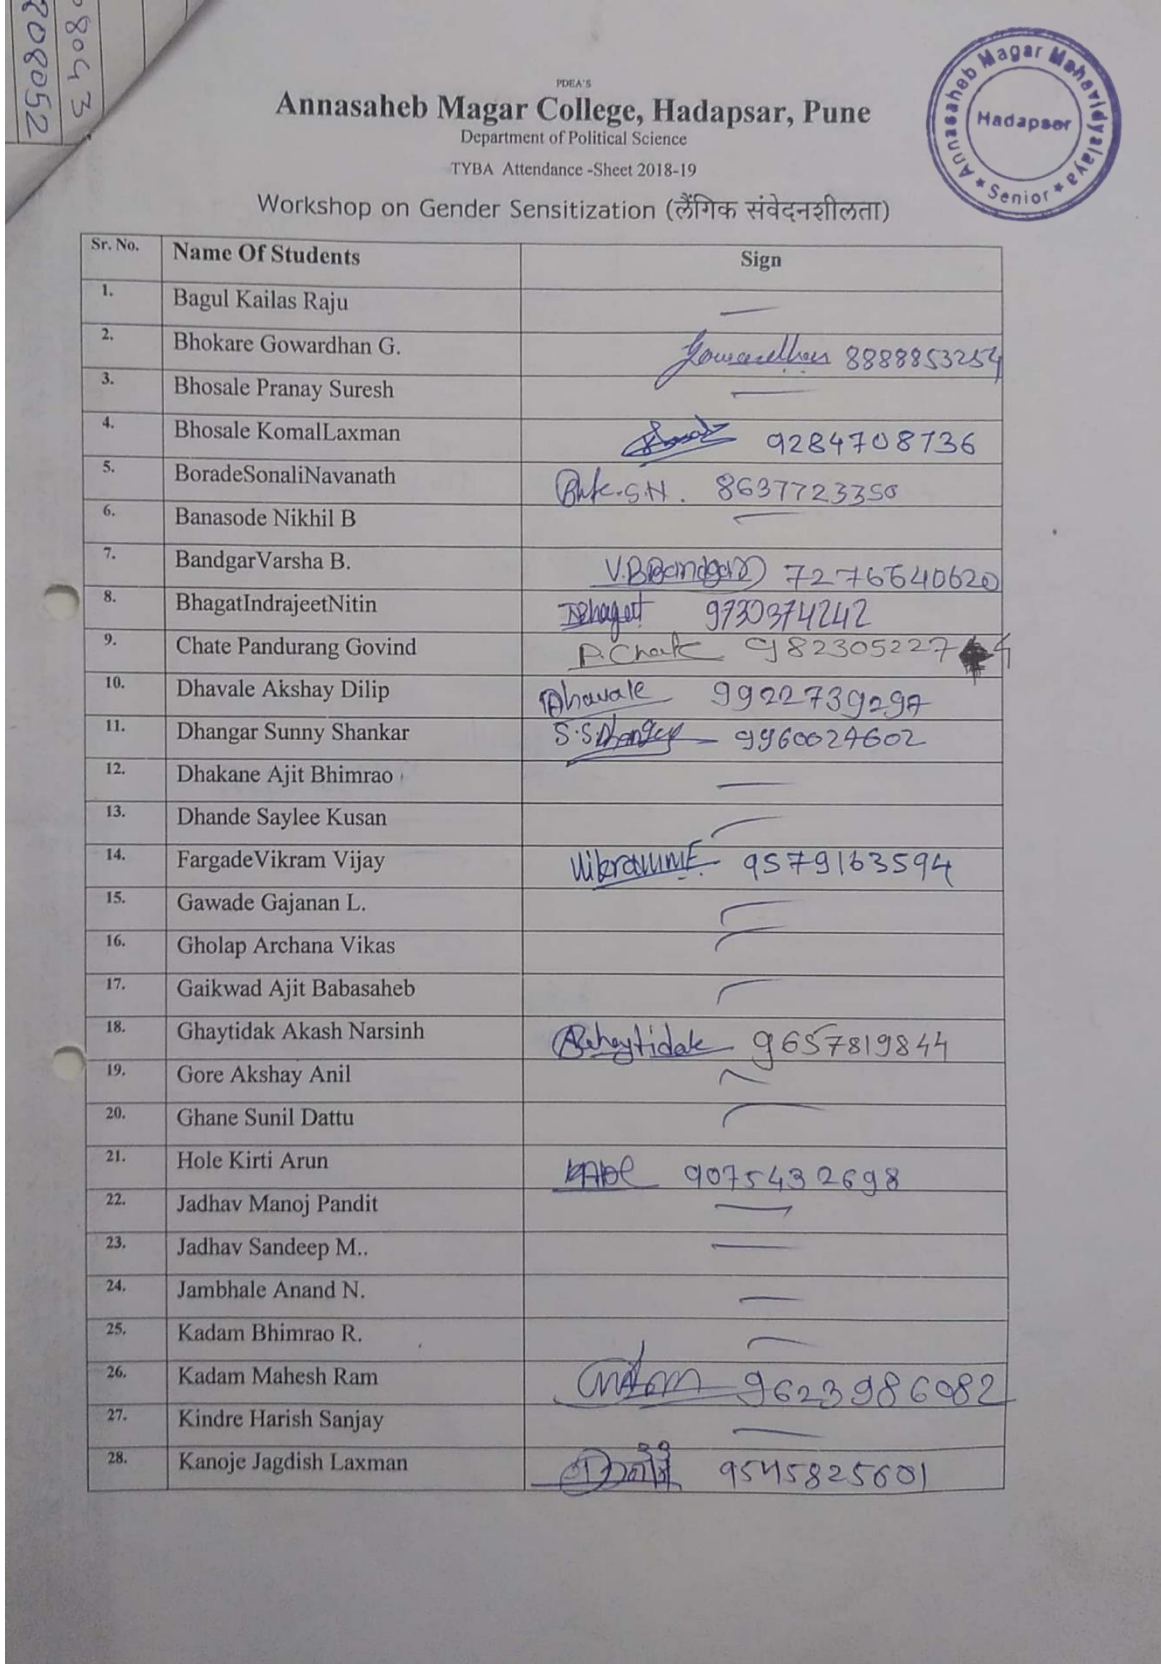 08043
208052
PDEA'S
Annasaheb Magar College, Hadapsar, Pune
Department of Political Science
TYBA Attendance -Sheet 2018-19
Workshop on Gender Sensitization (लैंगिक संवेदनशीलता)
Annasaheb Magar Mahavidyalaya
Hadapsar
★ Senior ★
Sr. No. Name Of Students Sign
1. Bagul Kailas Raju —
2. Bhokare Gowardhan G. Gowardhan 8888853254
3. Bhosale Pranay Suresh —
4. Bhosale KomalLaxman 9284708736
5. BoradeSonaliNavanath S.N. 8637723350
6. Banasode Nikhil B —
7. BandgarVarsha B. V.BBandgar 7276640620
8. BhagatIndrajeetNitin IBhagat 9730374242
9. Chate Pandurang Govind P.Chate 982305227 4
10. Dhavale Akshay Dilip Dhavale 9922739297
11. Dhangar Sunny Shankar S.SDhangar 9960024602
12. Dhakane Ajit Bhimrao —
13. Dhande Saylee Kusan —
14. FargadeVikram Vijay 9579163594
15. Gawade Gajanan L. —
16. Gholap Archana Vikas —
17. Gaikwad Ajit Babasaheb —
18. Ghaytidak Akash Narsinh AGhaytidak 9657819844
19. Gore Akshay Anil —
20. Ghane Sunil Dattu —
21. Hole Kirti Arun 9075432698
22. Jadhav Manoj Pandit —
23. Jadhav Sandeep M.. —
24. Jambhale Anand N. —
25. Kadam Bhimrao R. —
26. Kadam Mahesh Ram 9623986082
27. Kindre Harish Sanjay —
28. Kanoje Jagdish Laxman 9545825601